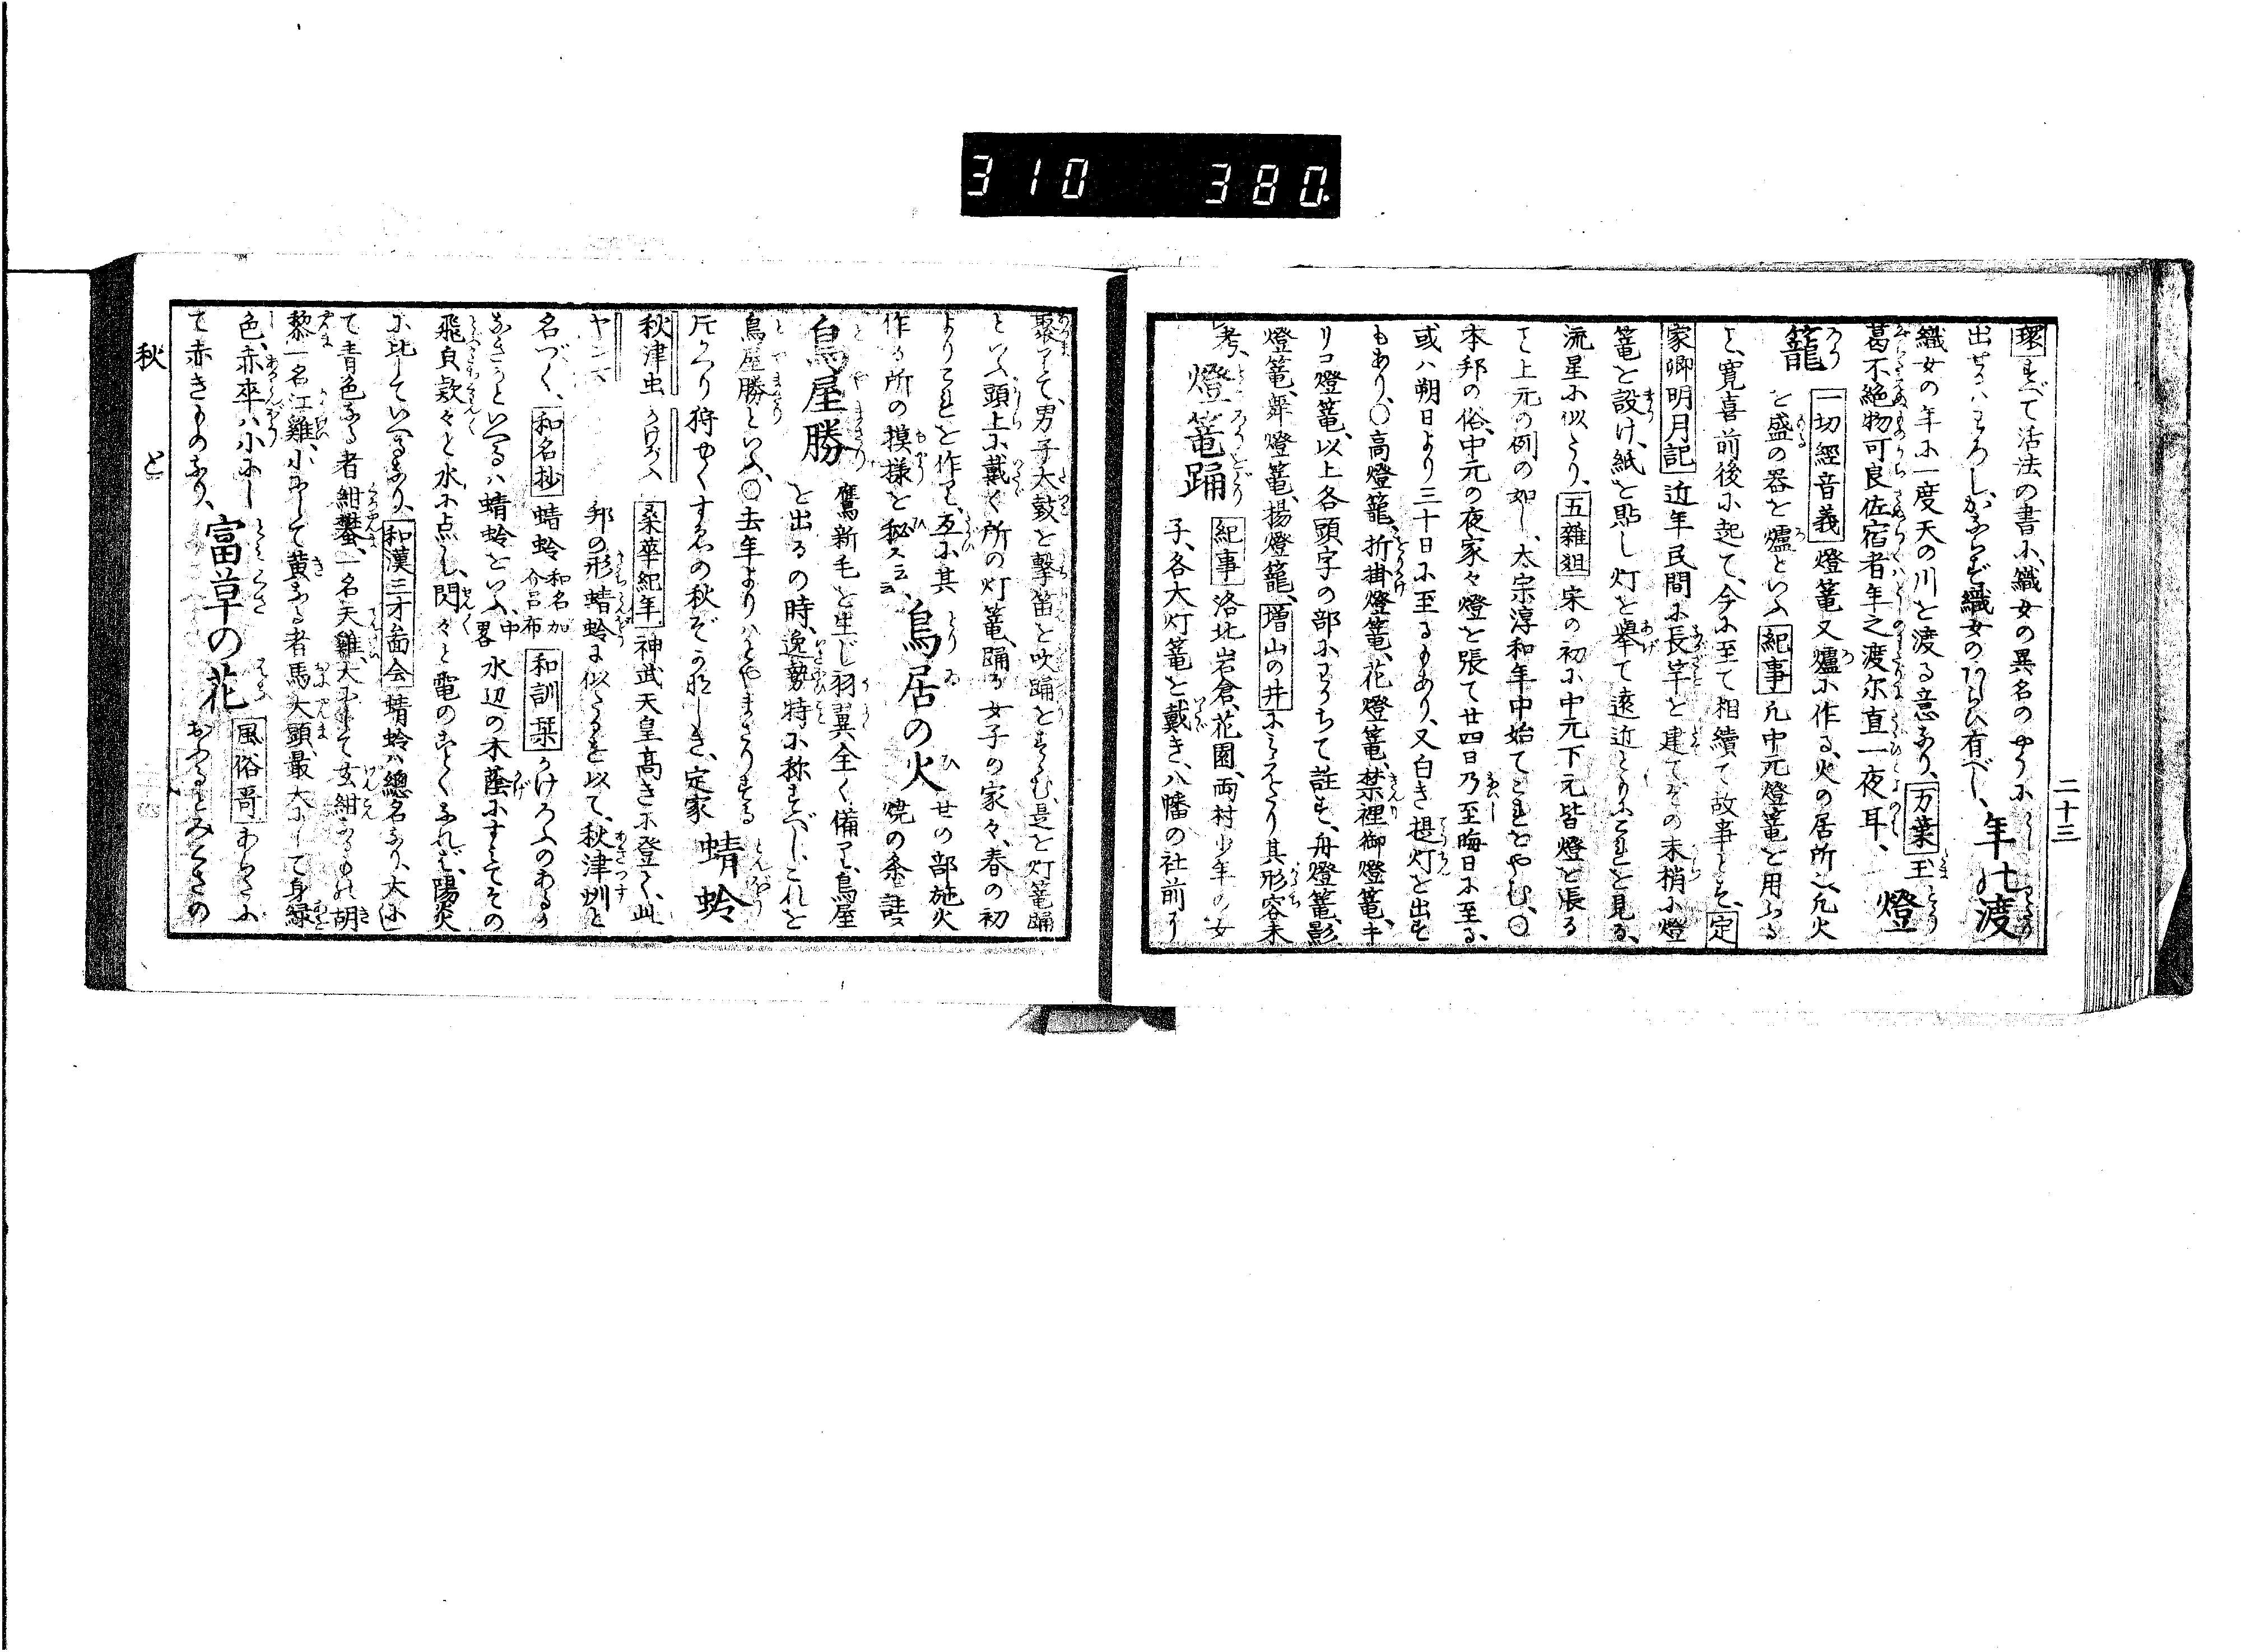 310 380
二十三
環すべて活法の書に、織女の異名のやうに
出せるハわろし、かならず織女のあらひ有べし、年の渡
織女の年に一度天の川を渡る意なり、万葉玉
葛不絶物可良佐宿者年之渡尓直一夜耳、燈
籠 一切經音義 燈篭又爐に作る、火の居所也、凡火
を盛の器を爐といふ 紀事 凡中元燈篭を用ふる
こと、寛喜前後に起て、今に至て相續て故事とす、定
家卿明月記 近年民間に長竿を建て、その末梢に燈
篭を設け、紙を貼し灯を舉て遠近ともにこれを見る、
流星に似たり、五雜爼 宋の初に中元下元皆燈を張る
こと上元の例の如し、太宗淳和年中始てこれをやむ、〇
本邦の俗、中元の夜家々燈を張て廿四日乃至晦日に至る、
或ハ朔日より三十日に至るもあり、又白き提灯を出す
もあり、〇高燈籠、折掛燈篭、花燈篭、禁裡御燈篭、キ
リコ燈篭、以上各頭字の部にわかちて註す、舟燈篭、影
燈篭、舞燈篭、揚燈籠、増山の井にみえたり其形容未
考、燈篭踊 紀事 洛北岩倉、花園、両村少年の女
子、各大灯篭を戴き、八幡の社前より
聚りて、男子太鼓を擊笛を吹踊をすゝむ、是を灯篭踊
といふ、頭上に戴く所の灯篭、踊る女子の家々、春の初
よりこれを作り、互に其
作る所の摸様を秘スト云、鳥居の火 せの部施火
焼の条註ス
鳥屋勝 鷹新毛を生じ羽翼全く備り、鳥屋
を出るの時、逸勢特に称すべし、これを
鳥屋勝といふ、〇去年よりハとやまさりする
片かへり狩ゆくすゑの秋ぞうれしき、定家 蜻蛉
秋津虫 かげろふ 桑華紀年 神武天皇高きに登て、此
ヤンマ 邦の形蜻蛉に似たるを以て、秋津洲と
名づく、和名抄 蜻蛉 和名加介呂布 和訓栞 かけろふのあるか
なきかといへるハ蜻蛉といふ、中畧 水辺の木蔭にすみてその
飛貞款々と水に点し、閃々と電のごとくなれば、陽炎
に比していへるなり、和漢三才圖会 蜻蛉ハ總名なり、大に
て青色なる者紺蠜、一名天雞、大にして玄紺なるもの胡
黎一名江雞、小にして黄なる者馬大頭、最大にして身緑
色、赤卒ハ小にし
て赤きものなり、富草の花 風俗哥 あらたに
おふるとみくさの
秋 と